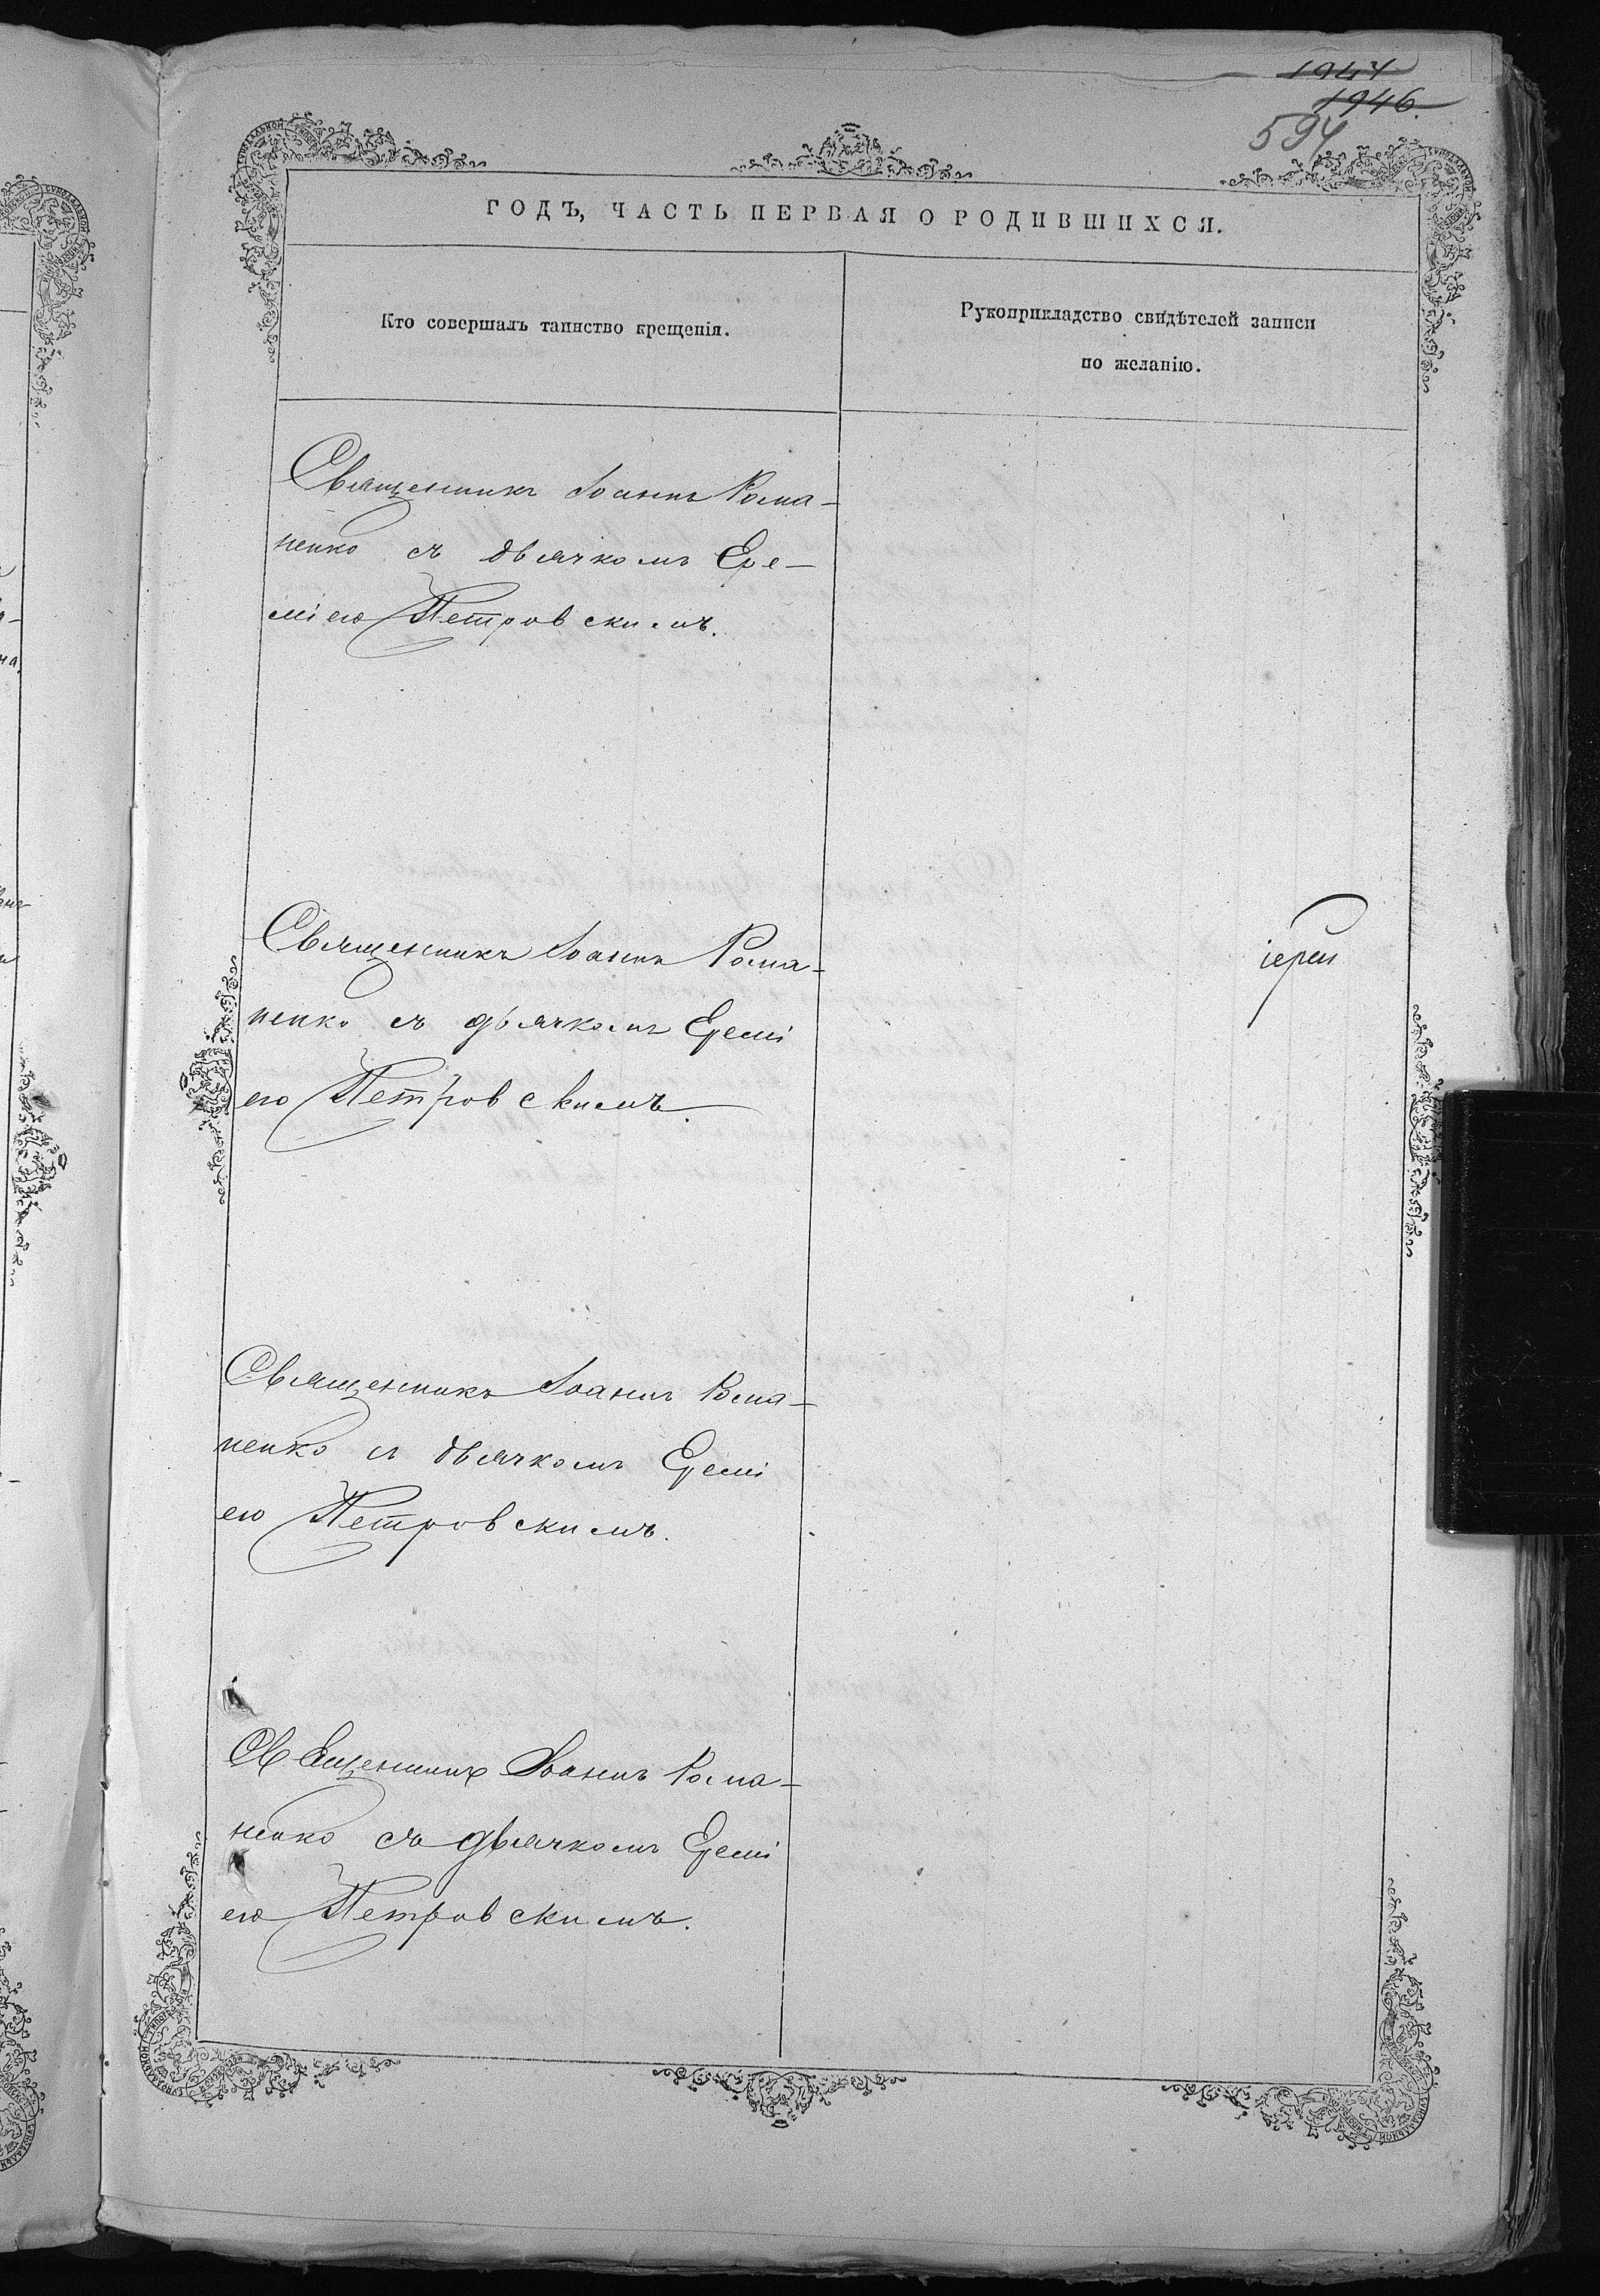 1944
1946.
594
ГОДЪ, ЧАСТЬ ПЕРВАЯ О РОДИВШИХСЯ.
Кто совершалъ таинство крещенія.
Рукоприкладство свидѣтелей записи
по желанію.
Священникъ Іоаннъ Рома-
ненко съ дьячкомъ Ере-
міею Петровскимъ.
Священникъ Іоаннъ Рома-
ненко съ дьячкомъ Еремі
ею Петровскимъ.
іерей
Священникъ Іоаннъ Рома-
ненко съ дьячкомъ Еремі
ею Петровскимъ.
Священникъ Іоаннъ Рома-
ненко съ дьячкомъ Еремі
ею Петровскимъ.